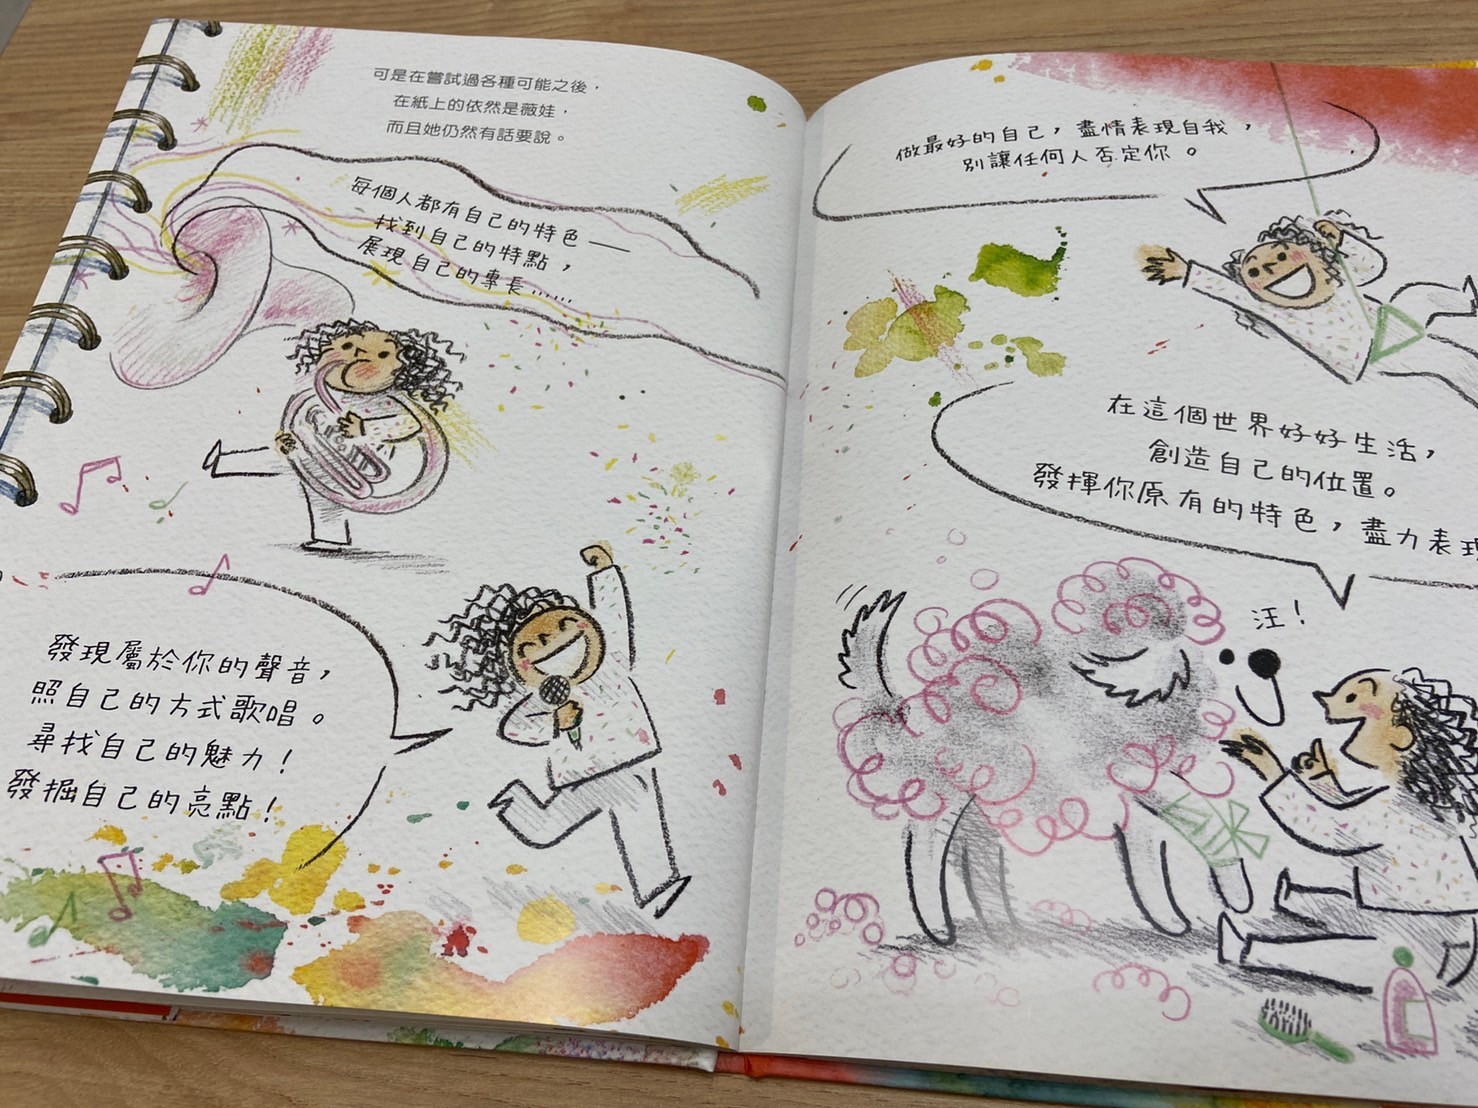 可是在嘗試過各種可能之後，
在紙上的依然是薇娃，
而且她仍然有話要說。
每個人都有自己的特色——
找到自己的特點，
展現自己的專長……
發現屬於你的聲音，
照自己的方式歌唱。
尋找自己的魅力！
發掘自己的亮點！
做最好的自己，盡情表現自我，
別讓任何人否定你。
在這個世界好好生活，
創造自己的位置。
發揮你原有的特色，盡力表現
汪！